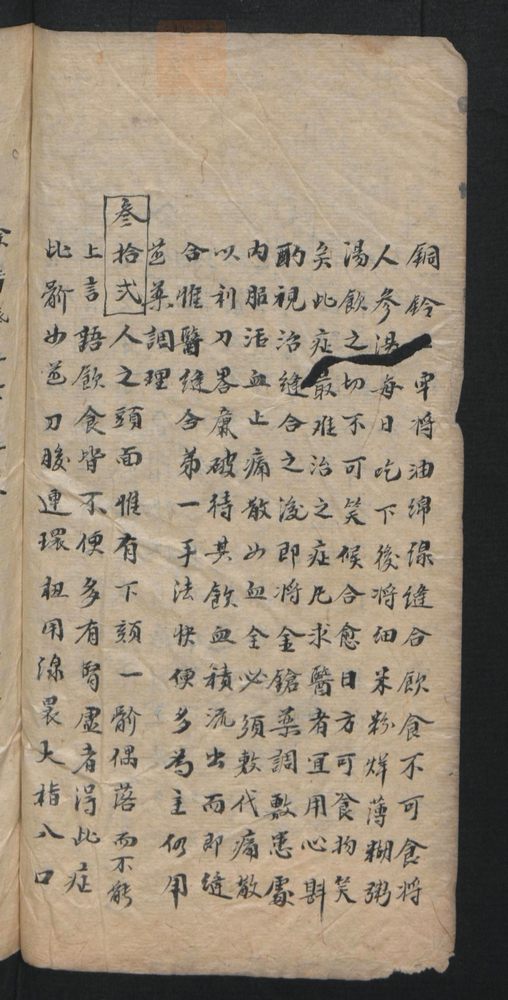 銅鈴一早將油綿線縫合飲食不可食將
人參湯每日吃下後將細米粉烊薄糊粥
湯飲之切不可笑候合愈日方可食狗笑
矣此症最难治之症凡求醫者宜用心斟
酌視治縫合之後即將金鎗藥調敷患處
内服活血止痛散如血全必須敷代痛散
以利刀畧廉破待其飲血積流出而即縫
合惟醫縫合第一手法快便多為主仍用
芭藥調理
叁拾弍人之頭面惟有下頦一骱偶落而不能
上言語飲食皆不便多有腎虚者得此症
比骱如芭刀朘連環扭用綿裹大指入口